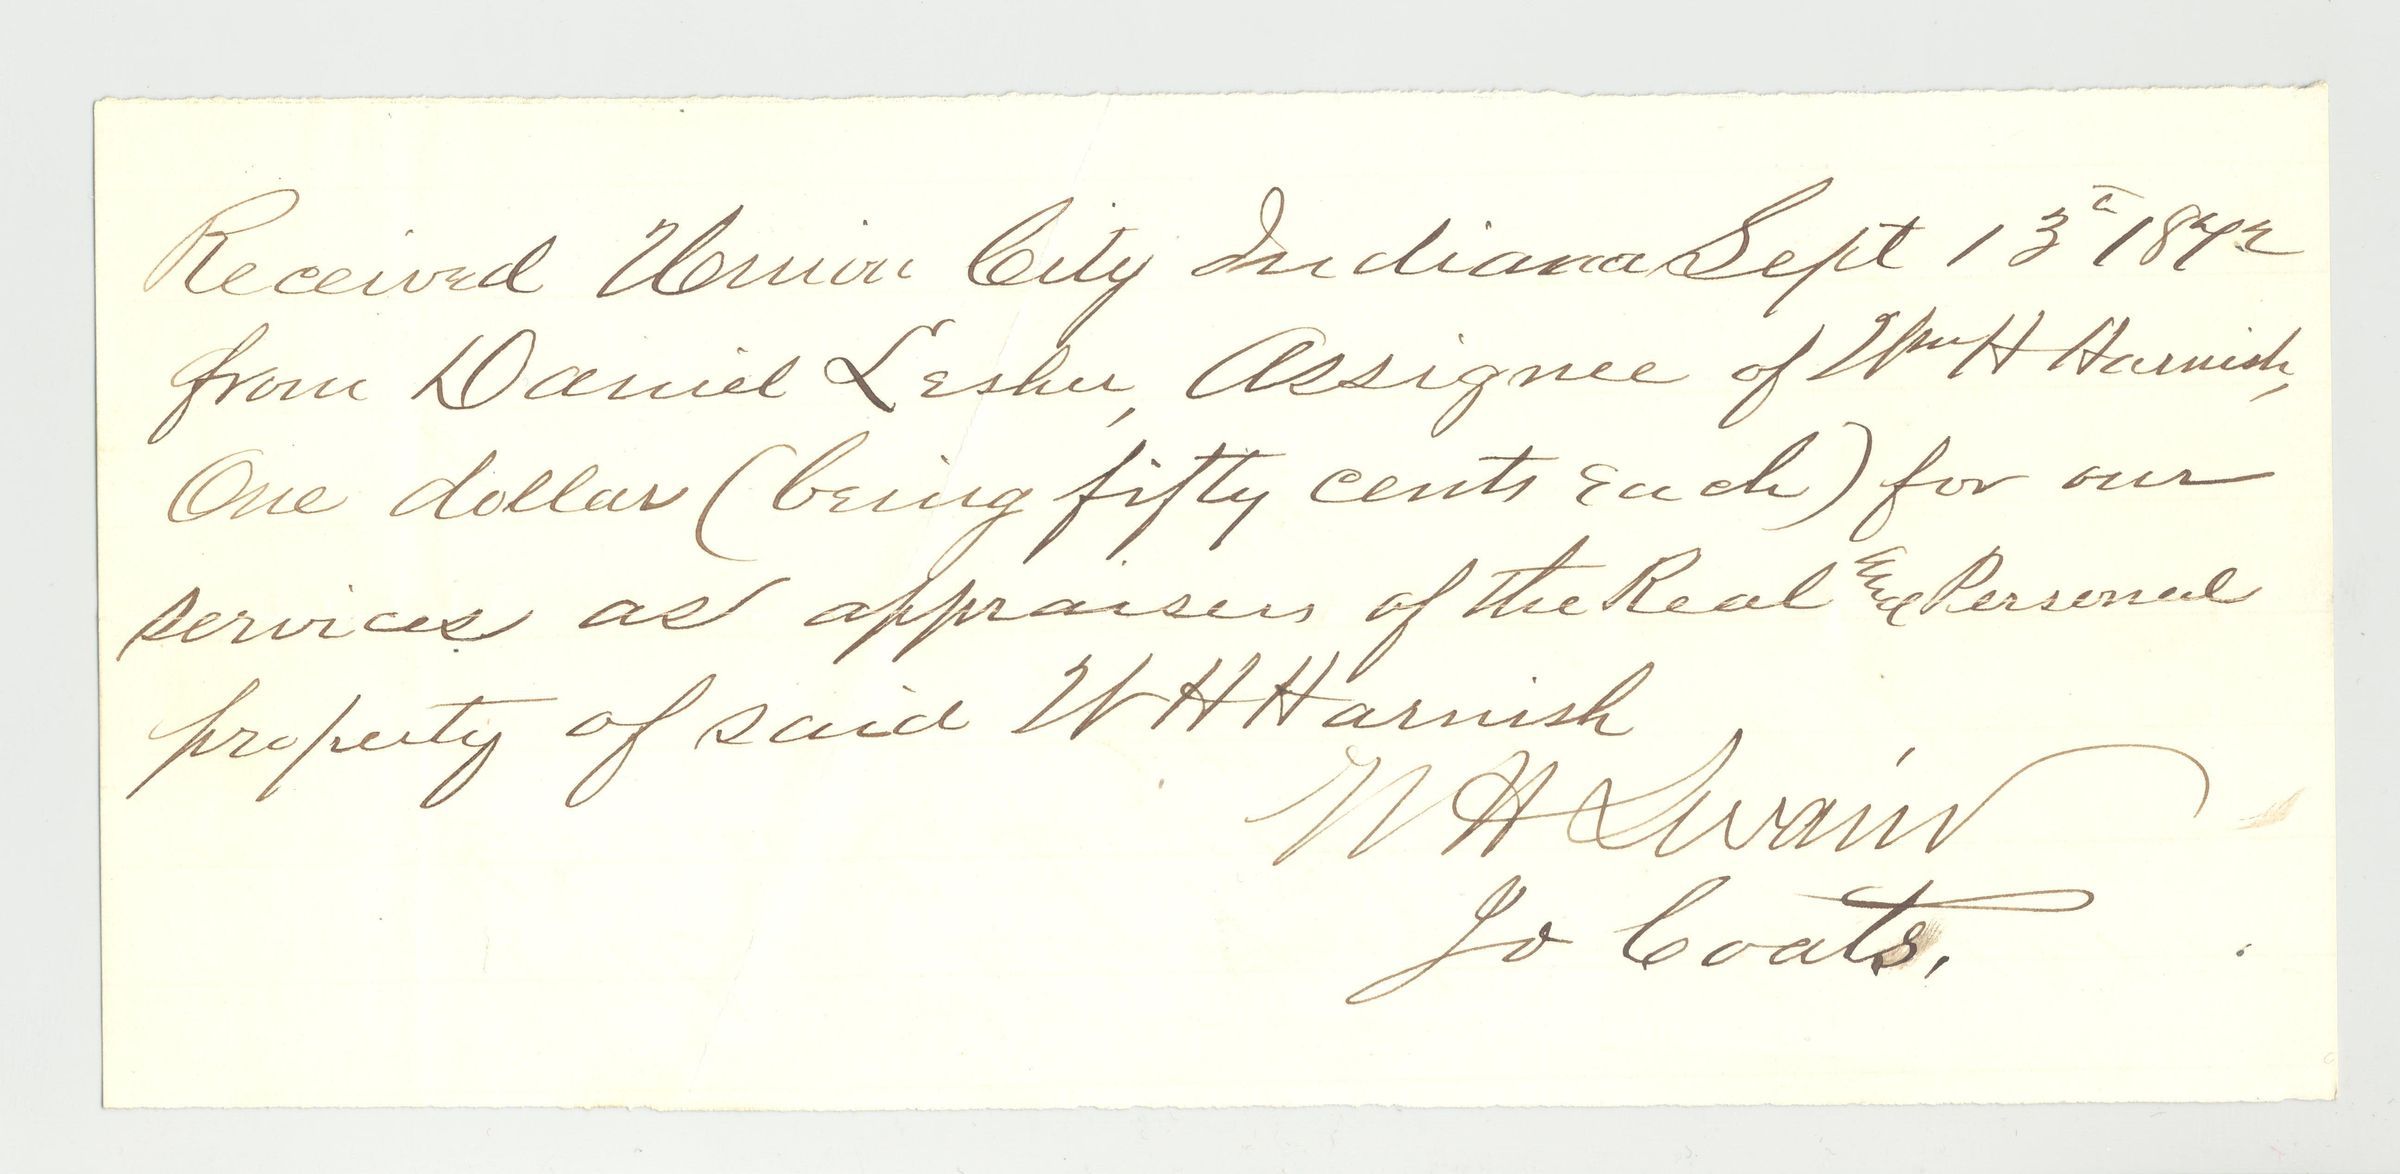 Received Union City Indiana Sept 13th 1872
from Daniel Lesher, Assignee of Wm H Harnish,
One dollar (being fifty cents each) for our
services as appraisers of the Real and Personal
property of said W H Harnish
W H Swain
Jo Coats.